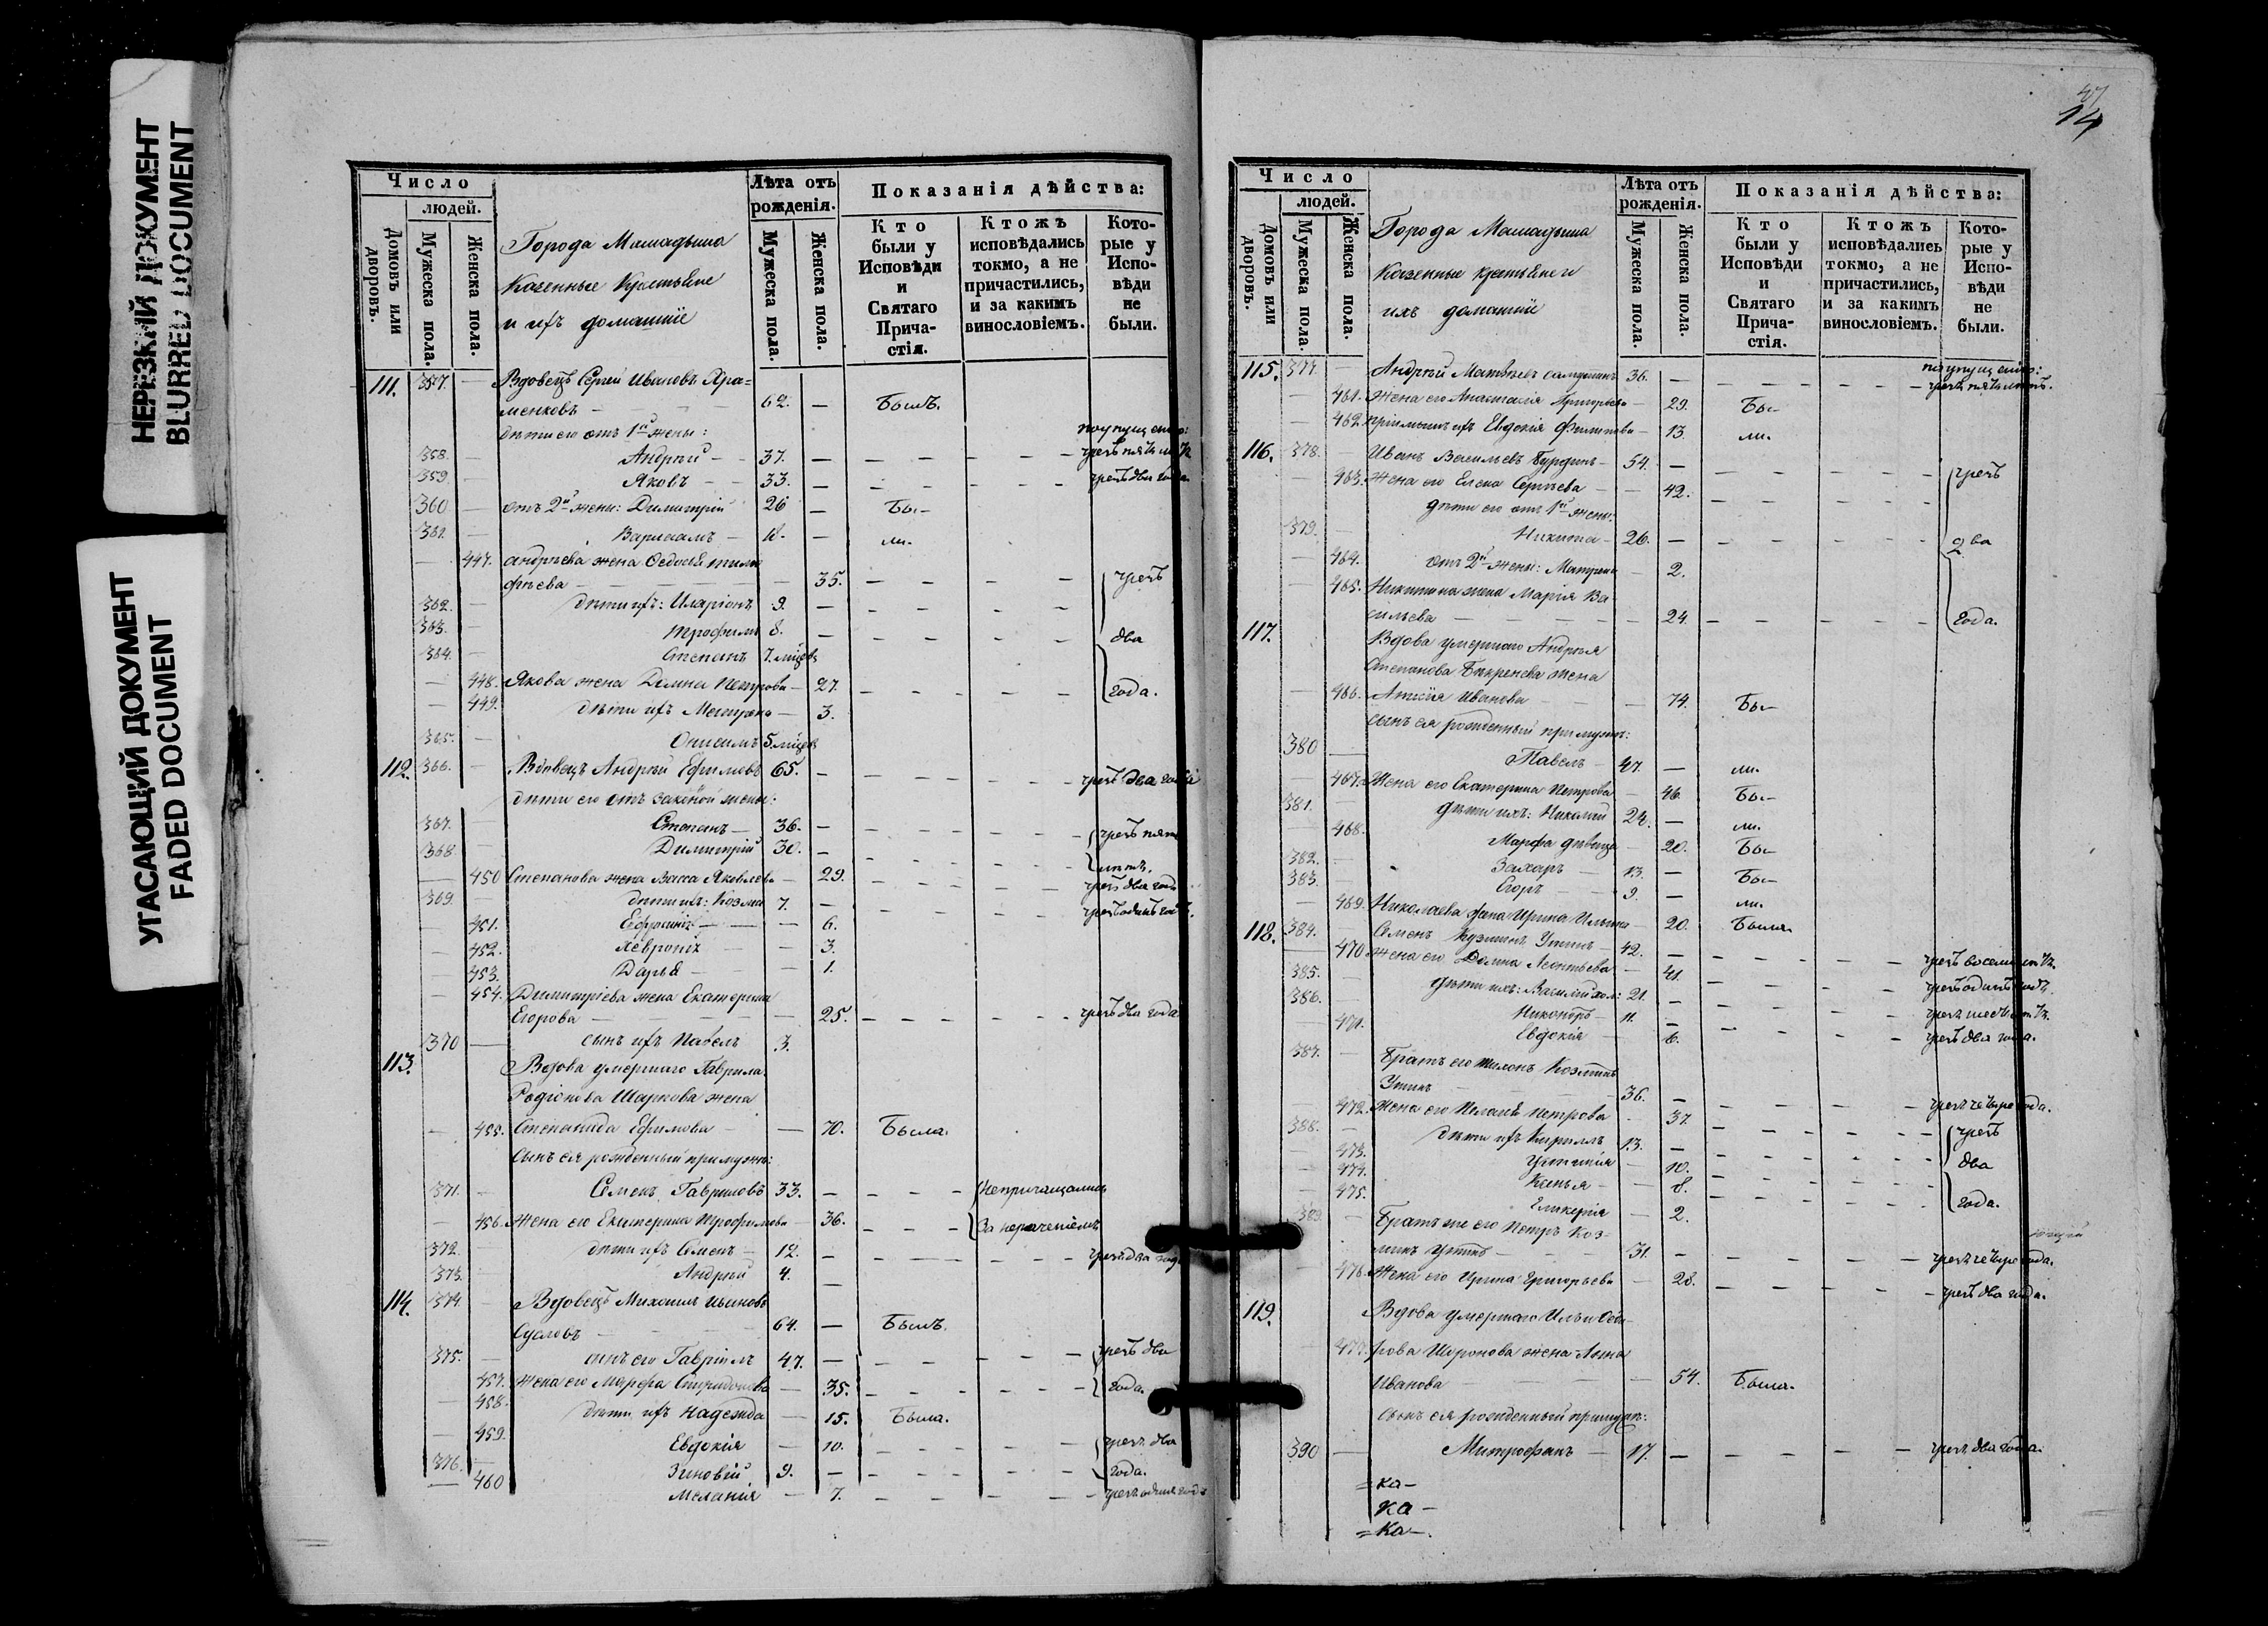 НЕРЕЗКИЙ ДОКУМЕНТ
BLURRED DOCUMENT
УГАСАЮЩИЙ ДОКУМЕНТ
FADED DOCUMENT
Число
людей.
Домовъ или дворовъ.
Мужеска пола.
Женска пола.
Города Мамадыша
Казенные Крестьяне
и ихъ домашніе
Лѣта отъ рожденія.
Мужеска пола.
Женска пола.
Показанія дѣйства:
Кто были у Исповѣди и Святаго Причастія.
Ктожъ исповѣдались токмо, а не причастились, и за какимъ винословіемъ.
Которые у Исповѣди не были.
111. 357. — Вдовецъ Сергей Ивановъ Хра=
менковъ — 62. — Былъ.
дѣти его отъ 1й жены: по упущенію:
358. — Андрей — 37. —
359. — Яковъ — 33. — чрезъ два года.
360 — отъ 2й жены: Димитрій 26 — Бы-
361. — Варлаамъ — 18. — ли.
— 447. Андреева жена
35. — чрезъ
362. — дѣти ихъ: Иларіонъ 9. —
363. — Трофимъ 8. — два
364. — Степанъ 7. мѣсцевъ
— 448. Якова жена Домна Петрова — 27. — года.
— 449. дѣти ихъ Матрона — 3.
365. — Онисимъ 5. мѣсцевъ
112. 366. — Вдовецъ Андрей Ефимовъ 65. — чрезъ два года
дѣти его отъ законой жены:
367. — Степанъ — 36. — чрезъ пять
368 — Димитрій 30. — лѣтъ.
— 450 Степанова жена Васса Яковлева — 29. чрезъ два года
369 — дѣти ихъ: Козма 7. — чрезъ одинъ годъ.
— 451. — 6.
— 452. — 3.
— 453. Дарья — — 1.
— 454. Димитріева жена Екатерина
Егорова — 25. — чрезъ два года.
370 — сынъ ихъ Павелъ 3.
113. Вдова умершаго Гаврила
Родіонова Шаркова жена
— 455. Степанида Ефимова — 70. Была.
Сынъ ея рожденный при мужѣ:
371. — Семенъ Гавриловъ 33. — Непричащались
— 456. Жена его Екатерина Трофимова — 36. — За нераченіемъ
372. — дѣти ихъ Семенъ — 12. — чрезъ два года
373. — Андрей 4. —
114. 374. — Вдовецъ Михаилъ Ивановъ
Сусловъ — 64. — Былъ.
375. — сынъ его Гавріилъ 47. — чрезъ два
— 457. Жена его Марфа Спиридонова — 35. — года.
— 458. дѣти ихъ Надежда — 15. Была.
— 459. Евдокія — 10. — чрезъ два
376. — Зиновій 9. — года.
— 460 Меланія — 7. — чрезъ одинъ годъ
47
14
Число
людей.
Домовъ или дворовъ.
Мужеска пола.
Женска пола.
Города Мамадыша
Казенные крестьяне и
ихъ домашніе
Лѣта отъ рожденія.
Мужеска пола.
Женска пола.
Показанія дѣйства:
Кто были у Исповѣди и Святаго Причастія.
Ктожъ исповѣдались токмо, а не причастились, и за какимъ винословіемъ.
Которые у Исповѣди не были.
по упущенію:
115. 377 — Андрей Матвѣевъ 36. — чрезъ пять лѣтъ.
— 461. Жена его Анастасія Григорьева — 29. Бы-
— 462. пріемышъ ихъ Евдокія Филипова — 13. ли.
116. 378. Иванъ Васильевъ — 54. — чрезъ
— 463. Жена его Елена Сергѣева — 42.
дѣти его отъ 1й жены:
379. — Никита — 26. — два
— 464. отъ 2й жены: Матрена — 2.
— 465. Никитина жена Марія Ва-
сильева — 24. — года.
117. Вдова умершаго Андрея
Степанова жена
— 466. Анисія Иванова — 74. Бы-
сынъ ея рожденный при мужѣ:
380 — Павелъ — 47. — ли.
— 467. Жена его Екатерина Петрова — 46. Бы-
381. — дѣти ихъ: Николай 24. — ли.
— 468. Марфа девица — 20. Бы-
382. — Захаръ — 13. — Бы-
383. — Егоръ — 9. — ли.
— 469. Николаева жена Ирина Ильина — 20. Была.
118. 384. — Семенъ Козминъ Утинъ — 42. — чрезъ восемь лѣтъ.
— 470 Жена его Домна Леонтьева — 41. чрезъ одинъ годъ.
385. — дѣти ихъ: Василій хол: 21. — чрезъ шесть лѣтъ.
386. — Никоноръ — 11. — чрезъ два года.
— 471. Евдокія — 6.
387. — Братъ его Филонъ Козминъ
Утинъ — 36. — чрезъ четыре года.
— 472. Жена его Пелагія Петрова — 37. чрезъ
388. — дѣти ихъ Кириллъ 13. —
— 473. — 10. два
— 474. Ксенья — 8.
— 475. Гликерія — 2. года.
389. — Братъ же его Петръ Коз-
минъ Утинъ — 31. — чрезъ четыре года.
— 476. Жена его Ирина Григорьева — 28. — чрезъ два года.
119. Вдова умершаго Ильи Ѳедо-
— 477. рова Шаронова жена Анна
Иванова — 54. Была.
сынъ ея рожденный при мужѣ:
390 — Митрофанъ — 17. — чрезъ два года.
=ка-
ка-
=ка-.